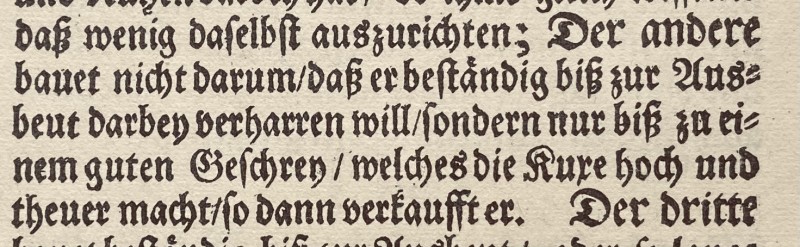 daß wenig daselbst auszurichten; Der andere
bauet nicht darum/daß er beständig biß zur Aus⸗
beut darbey verharren will/sondern nur biß zu ei⸗
nem guten Geschrey / welches die Kuxe hoch und
theuer macht/so dann verkaufft er. Der dritte